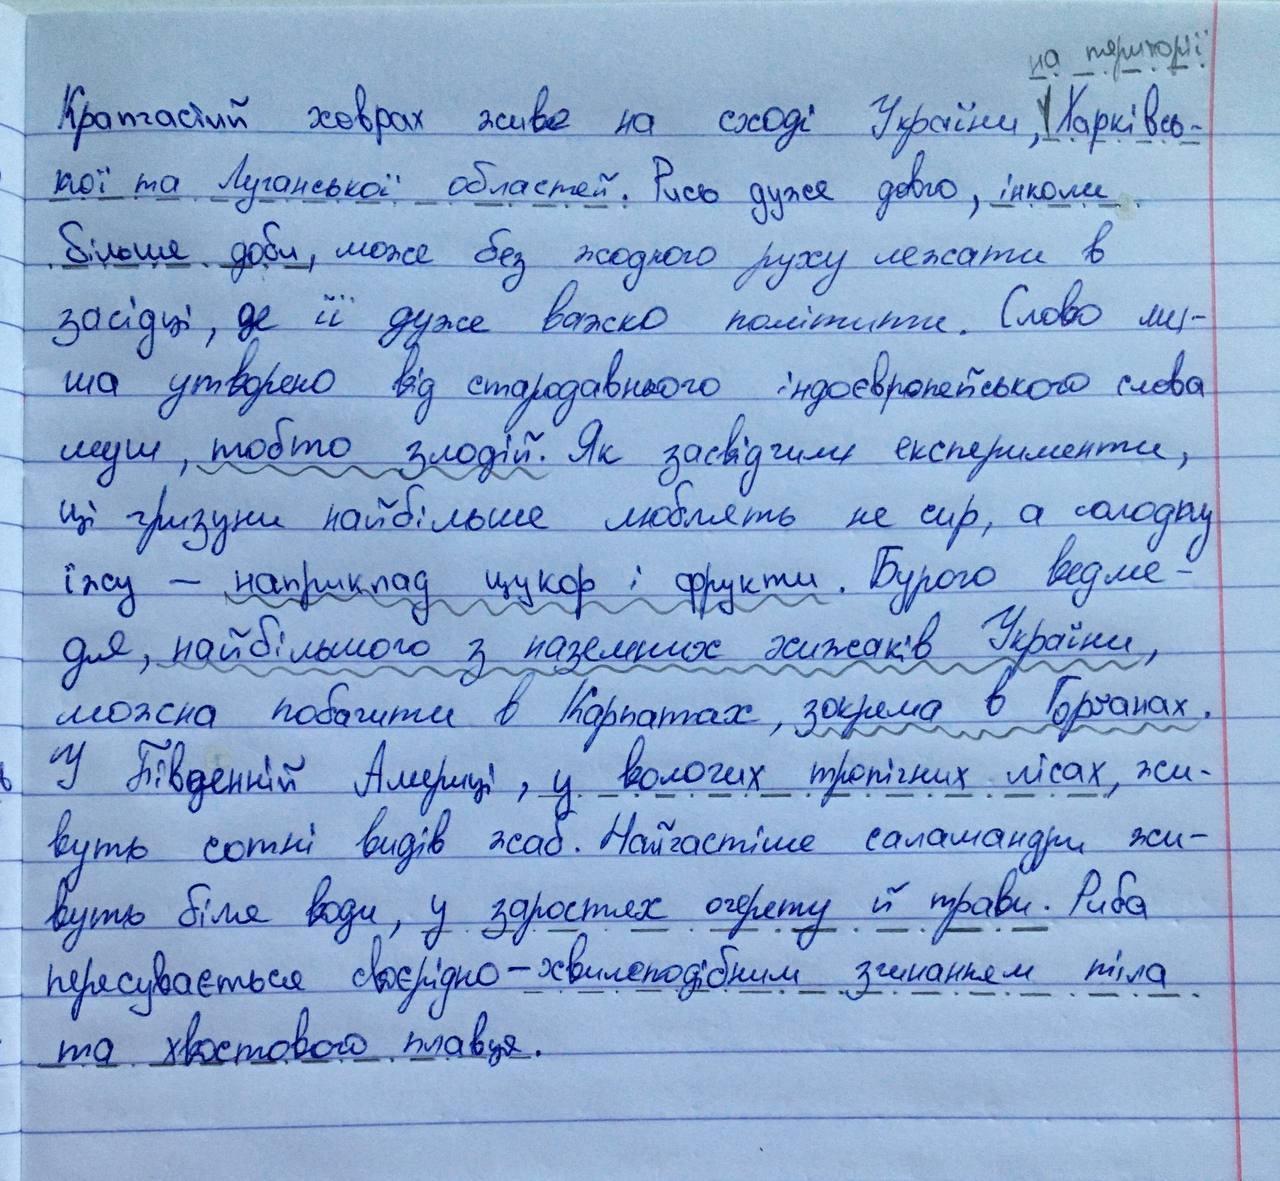 на території
Крапчастий ховрах живе на сході України, Харківсь-
кої та Луганської областей. Рись дуже довго, інколи
більше доби, може без жодного руху лежати в
засідці, де її дуже важко помітити. Слово ми-
ша утворено від стародавнього індоєвропейського слова
муш, тобто злодій. Як засвідчили експерименти,
ці гризуни найбільше люблять не сир, а солодку
їжу — наприклад цукор і фрукти. Бурого ведме-
дя, найбільшого з наземних хижаків України,
можна побачити в Карпатах, зокрема в Горганах.
У Південній Америці, у вологих тропічних лісах, жи-
вуть сотні видів жаб. Найчастіше саламандри жи-
вуть біля води, у заростях очерету й трави. Риба
пересувається своєрідно – хвилеподібним згинанням тіла
та хвостового плавця.